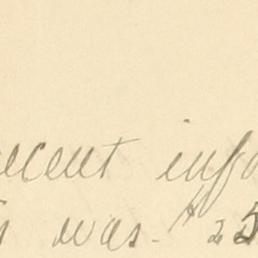 recent info
was. $25